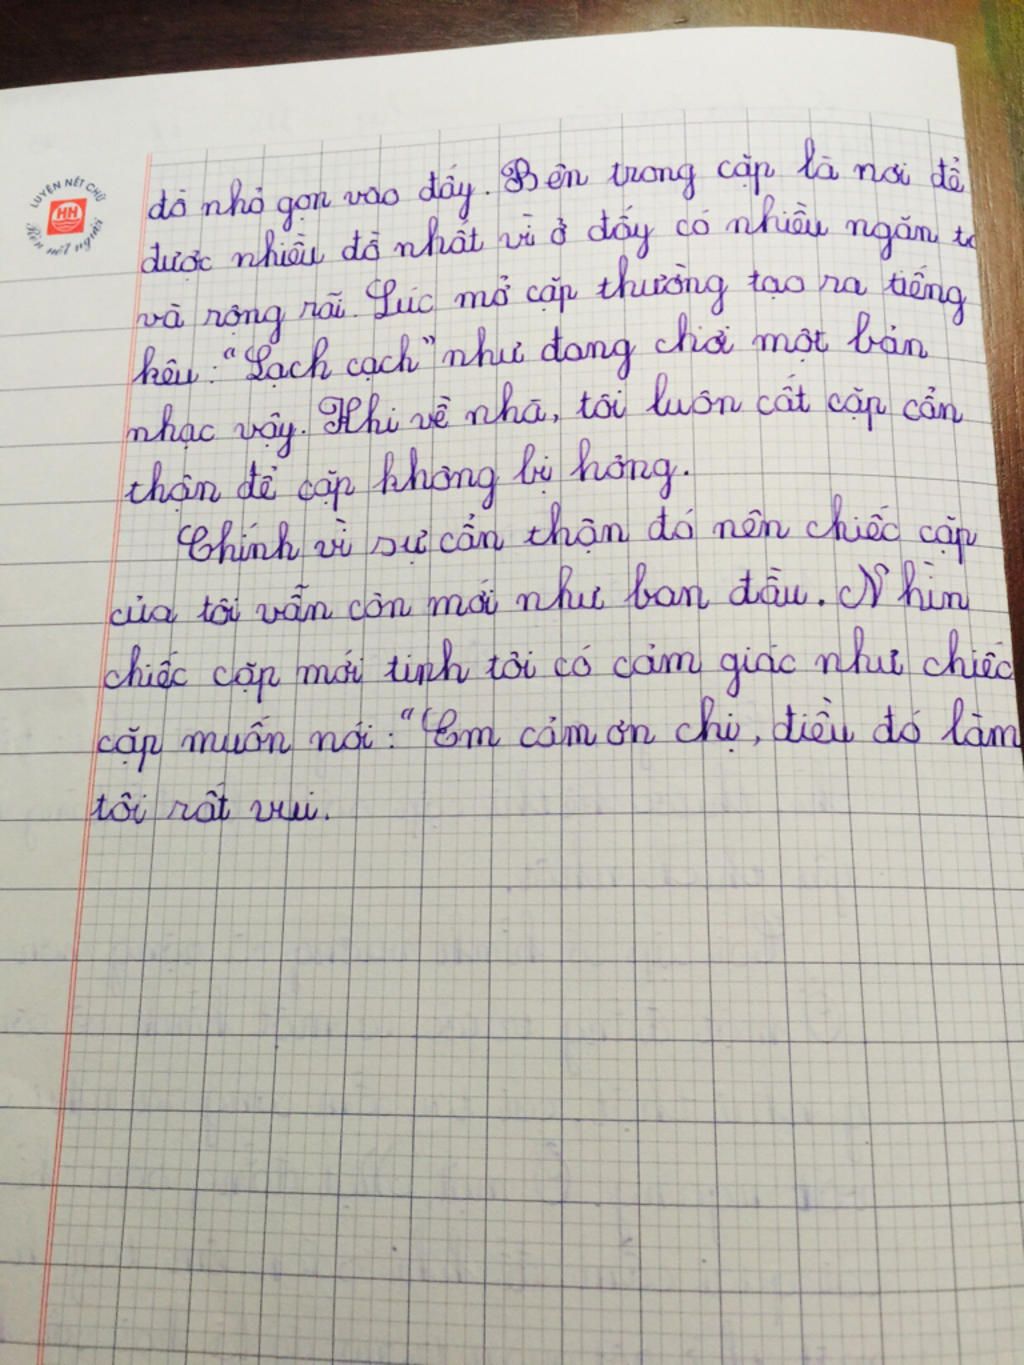 LUYỆN NÉT CHỮ
HH
Rèn nết người
đồ nhỏ gọn vào đấy. Bên trong cặp là nơi để
được nhiều đồ nhất vì ở đấy có nhiều ngăn to
và rộng rãi. Lúc mở cặp thường tạo ra tiếng
kêu: "Lạch cạch" như đang chơi một bản
nhạc vậy. Khi về nhà, tôi luôn cất cặp cẩn
thận để cặp không bị hỏng.
Chính vì sự cẩn thận đó nên chiếc cặp
của tôi vẫn còn mới như ban đầu. Nhìn
chiếc cặp mới tinh tôi có cảm giác như chiếc
cặp muốn nói: "Em cảm ơn chị, điều đó làm
tôi rất vui.